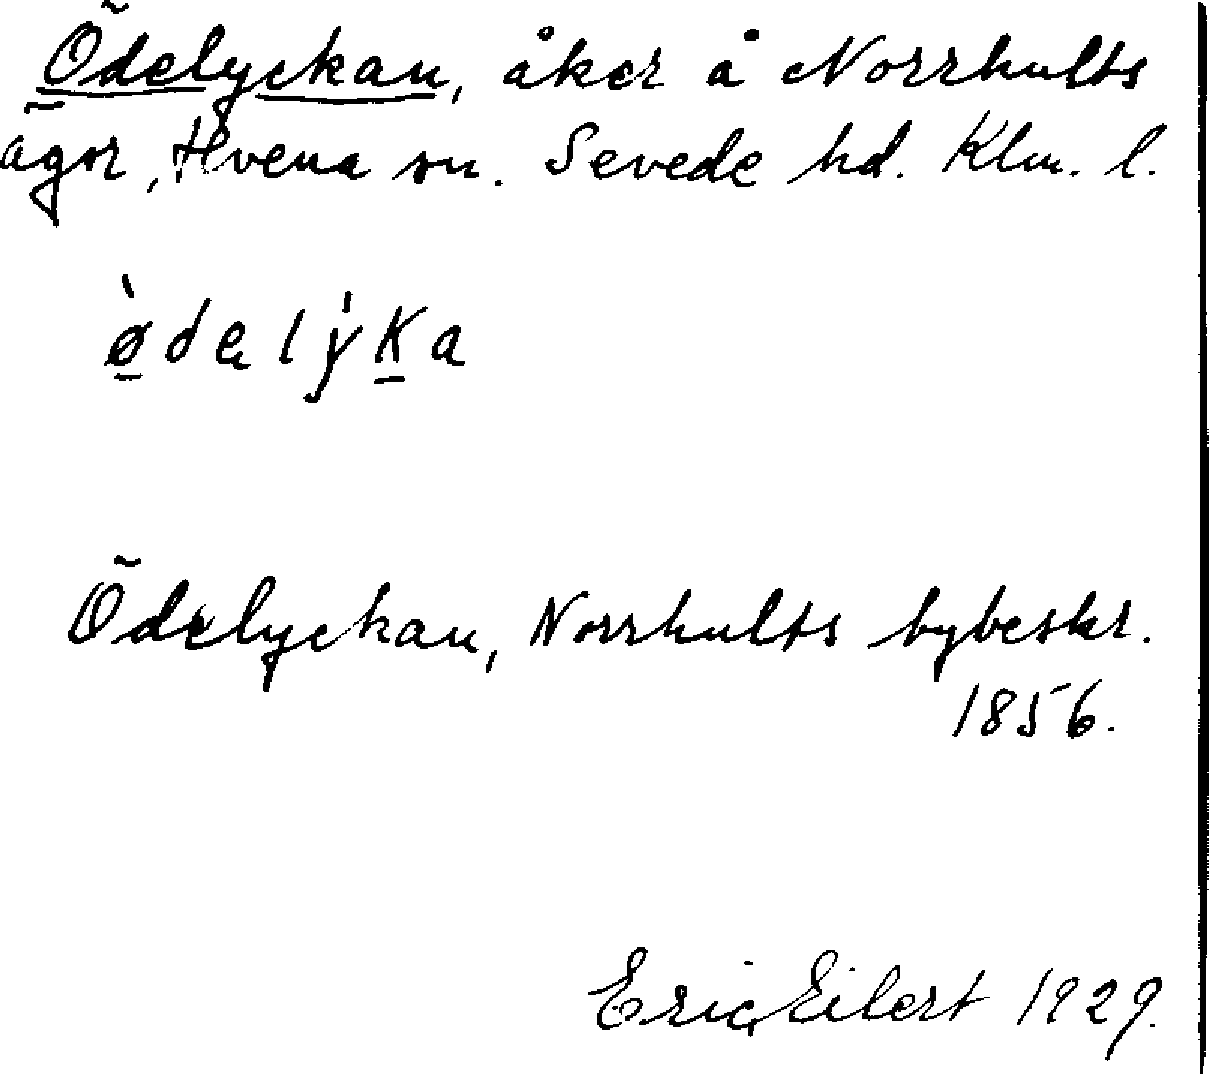 Ödelyckan, åker å Norrhults
ägor, Hvena sn. Sevede hd. Klm. l.
ø̀dəlýka
Ödelyckan, Norrhults bybeskr.
1856.
Eric Eilert 1929.